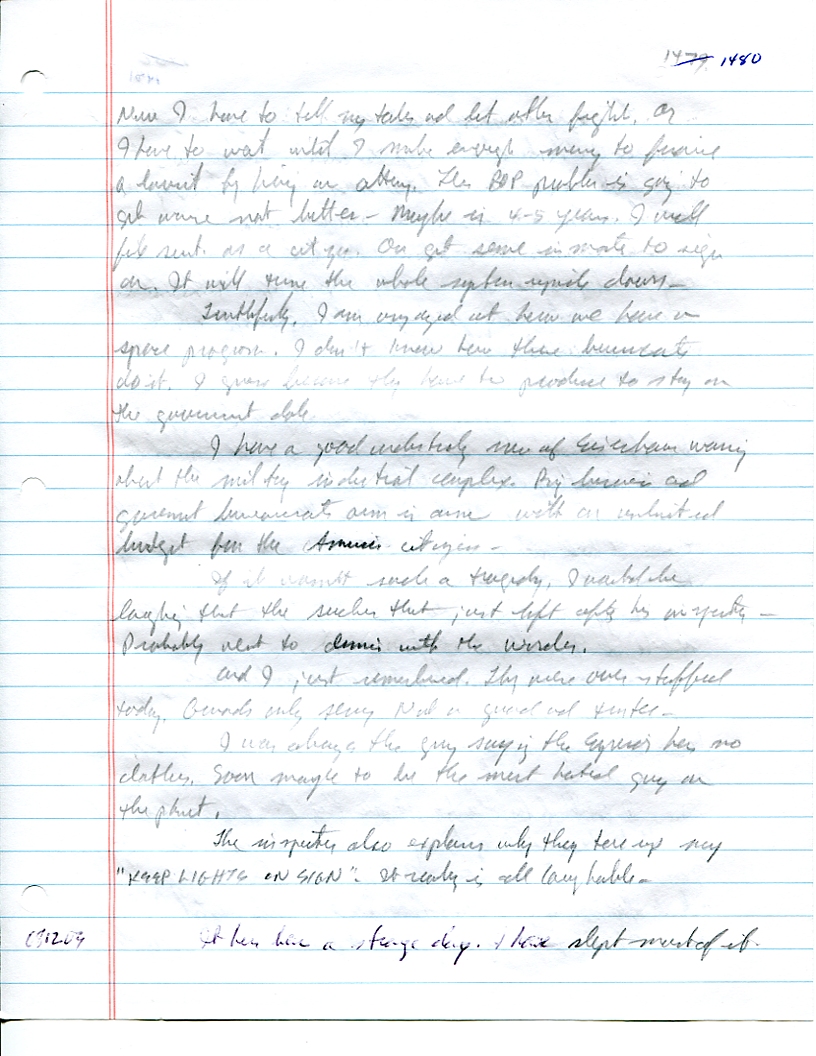 1479 1480
Now I have to tell my tales and let others fight. Or
I have to wait until I make enough money to finance
a lawsuit by hiring an attorney. This BOP problem is going to
get worse not better - Maybe in 4-5 years. I will
file suit. as a citizen. Or get some inmate to sign
on. It will turn the whole system upside down -
Truthfully, I am amazed at how we have a
space program. I don't know how these bureaucrats
do it. I guess because they have to produce to stay on
the government dole
I have a good understanding now of Eisenhower warning
about the military industrial complex. Big business and
government bureaucrats arm in arm with an unlimited
budget from the American citizens -
If it wasn't such a tragedy, I would be
laughing that the sucker that just left after his inspection -
Probably went to dinner with the Warden.
And I just remembered. They were over staffed
today. Guards only serving Not a guard and
I was always the guy saying the Emperor has no
clothes. Soon maybe to be the most hated guy on
the planet.
The inspection also explains why they tore up my
"KEEP LIGHTS ON SIGN". It really is all laughable -
It has been a strange day. I have slept most of it.